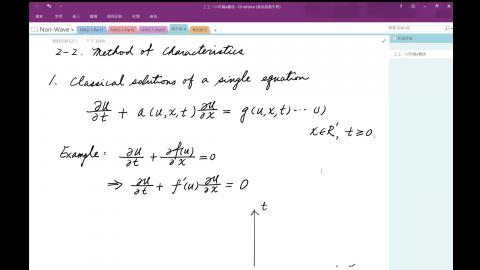 Non-Wave
2-2. Method of Characteristics
1. Classical solutions of a single equation
∂u/∂t + a(u,x,t) ∂u/∂x = g(u,x,t) ... (1)
x∈R¹, t≥0.
Example: ∂u/∂t + ∂f(u)/∂x = 0
⇒ ∂u/∂t + f'(u) ∂u/∂x = 0
t